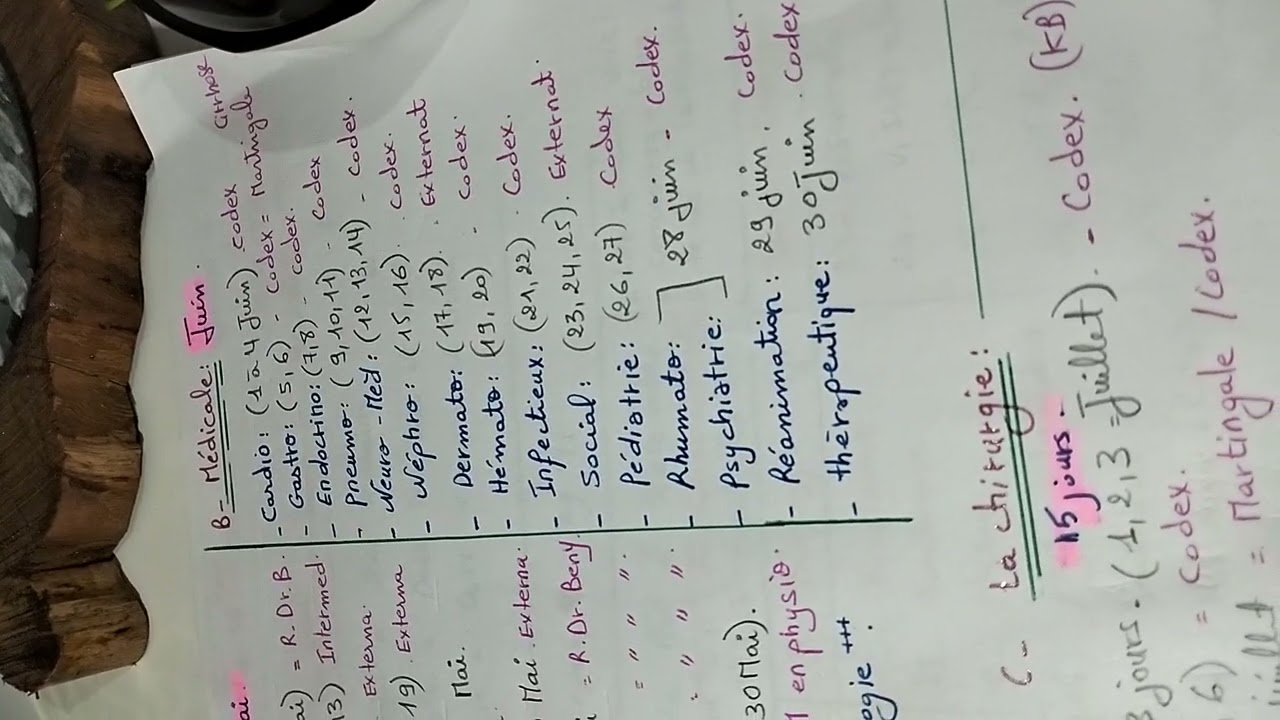 ai.
ai) = R.Dr.B.
13) Intermed.
Externa.
19). Externa
Mai.
Mai. Externa.
= R.Dr. Beny.
= " " ".
. " " ".
30 Mai).
en physio.
ogie +++.
B= Médicale: Juin.
- Cardio: (1 à 4 Juin). codex Cirrhose
- Gastro: (5, 6) - codex = Martingale
- Endoctrino: (7,8) - codex.
- Pneumo: (9, 10, 11) - codex
- Neuro-Méd: (12, 13, 14) - codex.
- Néphro: (15, 16). codex.
- Dermato: (17, 18). Externat
- Hémato: (19, 20) - codex.
- Infectieux: (21, 22). Codex.
- Social: (23, 24, 25). Externat.
- Pédiatrie: (26, 27) Codex
- Rhumato: ] 28 juin - Codex.
- Psychiatrie:
- Réanimation: 29 juin. Codex.
- thérapeutique: 30 Juin. Codex
C- La chirurgie:
- 15 jours -
jours. (1, 2, 3 Juillet). - Codex. (KB)
6) = Codex.
= Martingale / Codex.